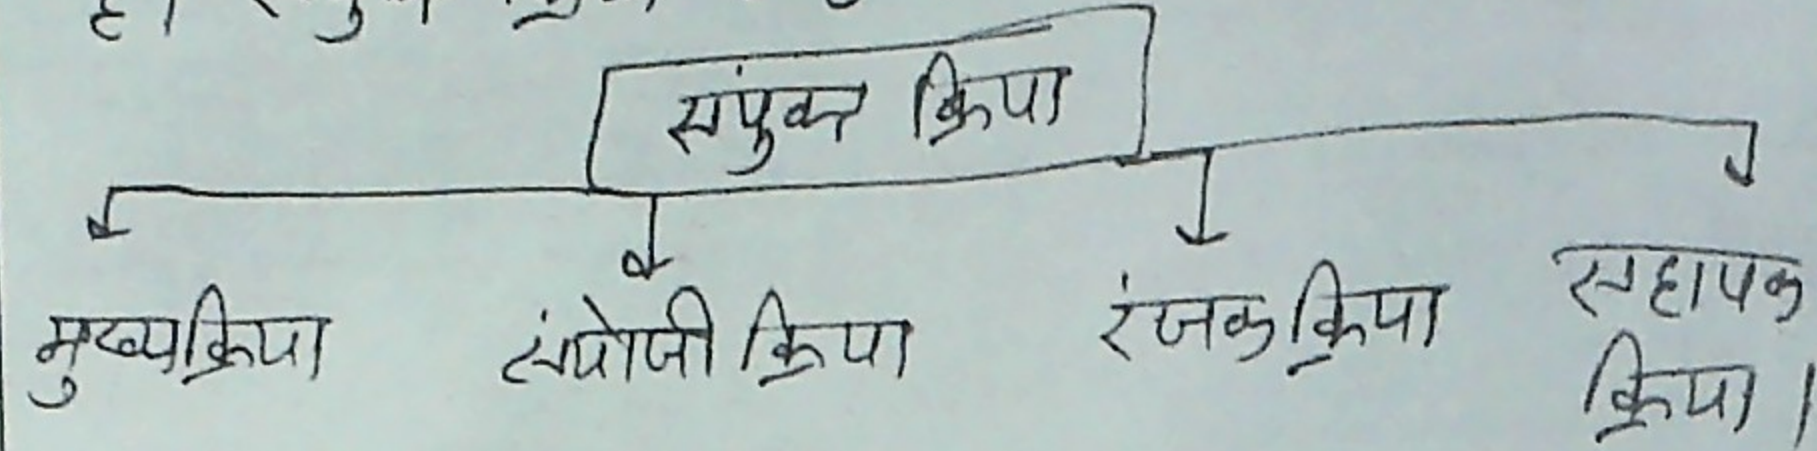 है।
संयुक्त क्रिया
मुख्य क्रिया संयोजी क्रिया रंजक क्रिया सहायक
क्रिया।